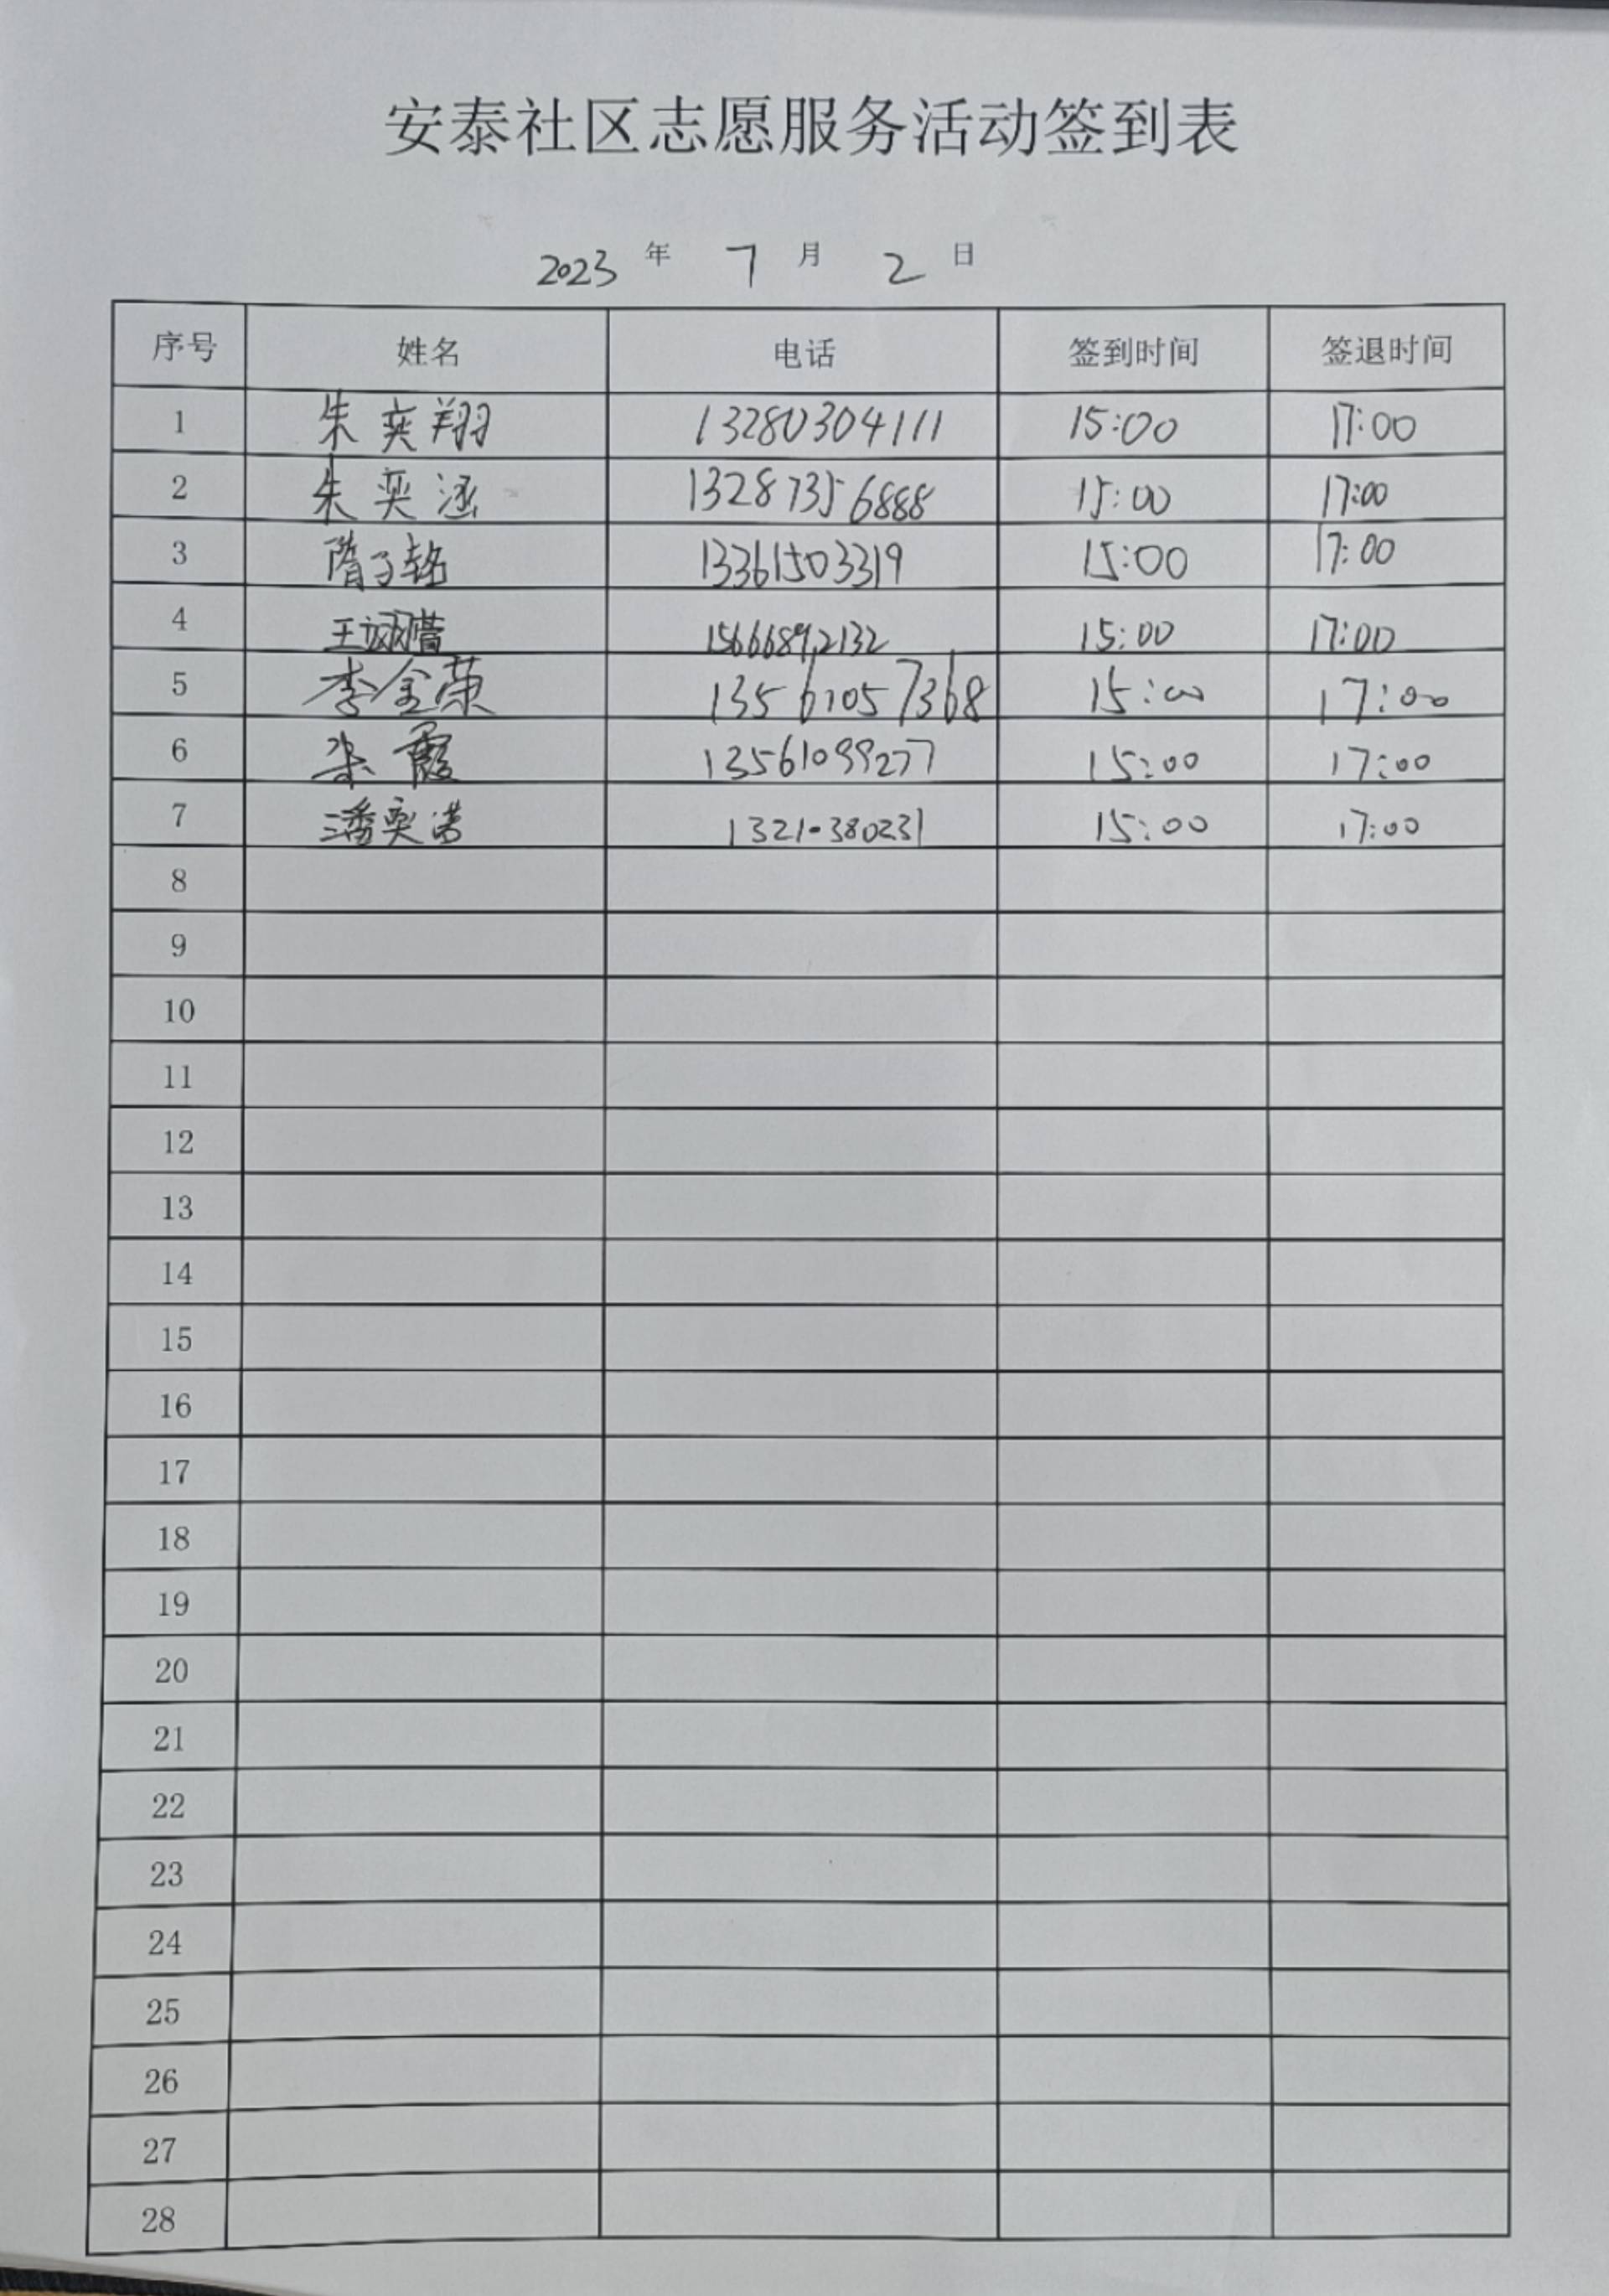 安泰社区志愿服务活动签到表
2023 年 7 月 2 日
序号 姓名 电话 签到时间 签退时间
1 朱奕翔 13280304111 15:00 17:00
2 朱奕涵 13287356888 15:00 17:00
3 隋子铭 13361503319 15:00 17:00
4 王 15666892132 15:00 17:00
5 李金荣 13561057368 15:00 17:00
6 朱霞 13561099277 15:00 17:00
7 潘奕诺 1321·380231 15:00 17:00
8
9
10
11
12
13
14
15
16
17
18
19
20
21
22
23
24
25
26
27
28